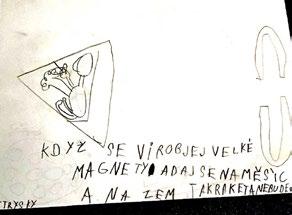 KDYŽ SE VIROBJEJ VELKÉ
MAGNETY A DAJ SE NA MĚSÍC
A NA ZEM TAK RAKETA NEBUDE
TRYSKY